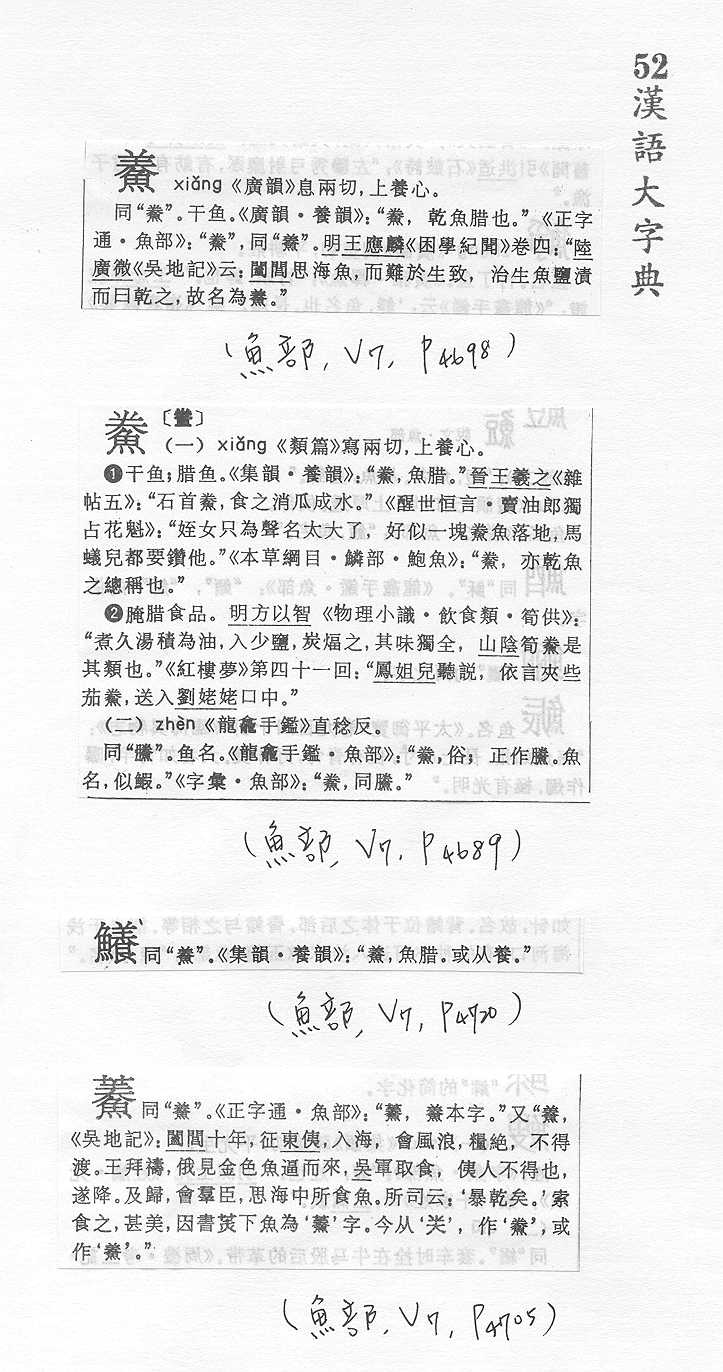 52漢語大字典
鯗 xiǎng《廣韻》息兩切,上養心。
同“鮝”。干鱼。《廣韻·養韻》:“鯗,乾魚腊也。”《正字
通·魚部》:“鯗”,同“鮝”。明王應麟《困學紀聞》卷四:“陸
廣微《吳地記》云:闔閭思海魚,而難於生致,治生魚鹽漬
而日乾之,故名為鯗。”
(魚部, V7, P4698)
鮝〔鲞〕
(一)xiǎng《類篇》寫兩切,上養心。
❶干鱼;腊鱼。《集韻·養韻》:“鮝,魚腊。”晉王羲之《雜
帖五》:“石首鮝,食之消瓜成水。”《醒世恒言·賣油郎獨
占花魁》:“姪女只為聲名大大了,好似一塊鮝魚落地,馬
蟻兒都要鑽他。”《本草綱目·鱗部·鮑魚》:“鮝,亦乾魚
之總稱也。”
❷腌腊食品。明方以智《物理小識·飲食類·筍供》:
“煮久湯積為油,入少鹽,炭煏之,其味獨全,山陰筍鮝是
其類也。”《紅樓夢》第四十一回:“鳳姐兒聽説,依言夾些
茄鮝,送入劉姥姥口中。”
(二)zhèn《龍龕手鑑》直稔反。
同“䲴”。鱼名。《龍龕手鑑·魚部》:“鮝,俗;正作䲴。魚
名,似鰕。”《字彙·魚部》:“鮝,同䲴。”
(魚部, V7, P4689)
同“鮝”。《集韻·養韻》:“鯗,魚腊。或从養。”
(魚部, V7, P4720)
同“鯗”。《正字通·魚部》:“䉳,鯗本字。”又“鯗,
《吳地記》:闔閭十年,征東侇,入海,會風浪,糧絶,不得
渡。王拜禱,俄見金色魚逼而來,吳軍取食,侇人不得也,
遂降。及歸,會羣臣,思海中所食魚。所司云:‘暴乾矣。’索
食之,甚美,因書茛下魚為‘䉳’字。今从‘类’,作‘鮝’,或
作‘鯗’。”
(魚部, V7, P4705)